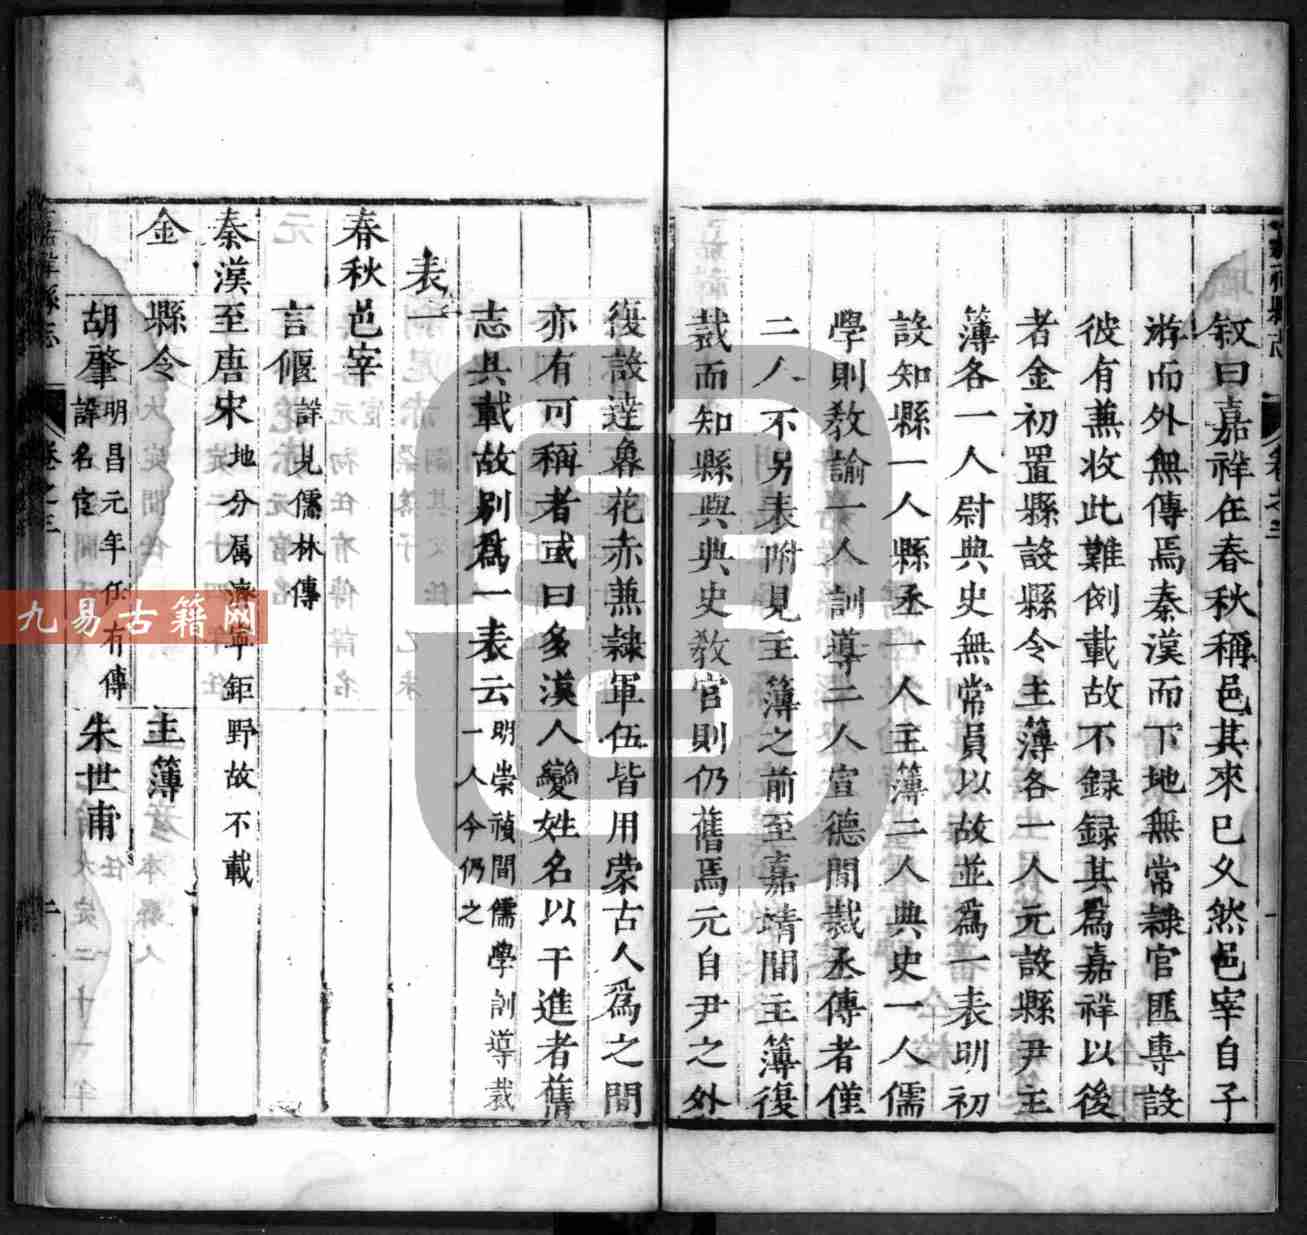 叙曰嘉祥在春秋稱邑其來已久然邑宰自子
游而外無傳焉秦漢而下地無常隷官匪專設
彼有兼收此難例載故不録録其為嘉祥以後
者金初置縣設縣令主簿各一人元設縣尹主
簿各一人尉典史無常員以故並為一表明初
設知縣一人縣丞一人主簿二人典史一人儒
學則教諭一人訓導二人宣德間裁丞傳者僅
二人不另表附見主簿之前至嘉靖間主簿復
裁而知縣與典史教官則仍舊焉元自尹之外
復設達魯花赤兼隷軍伍皆用蒙古人為之間
亦有可稱者或曰多漢人變姓名以干進者舊
志具載故别為一表云明崇禎間儒學訓導裁一人今仍之
表一
春秋邑宰
言偃詳見儒林傳
秦漢至唐宋地分属濟寧鉅野故不載
金 縣令 主簿
胡肇明昌元年任有傳詳名宦 朱世甫
嘉祥縣志 卷之三 二
九易古籍网